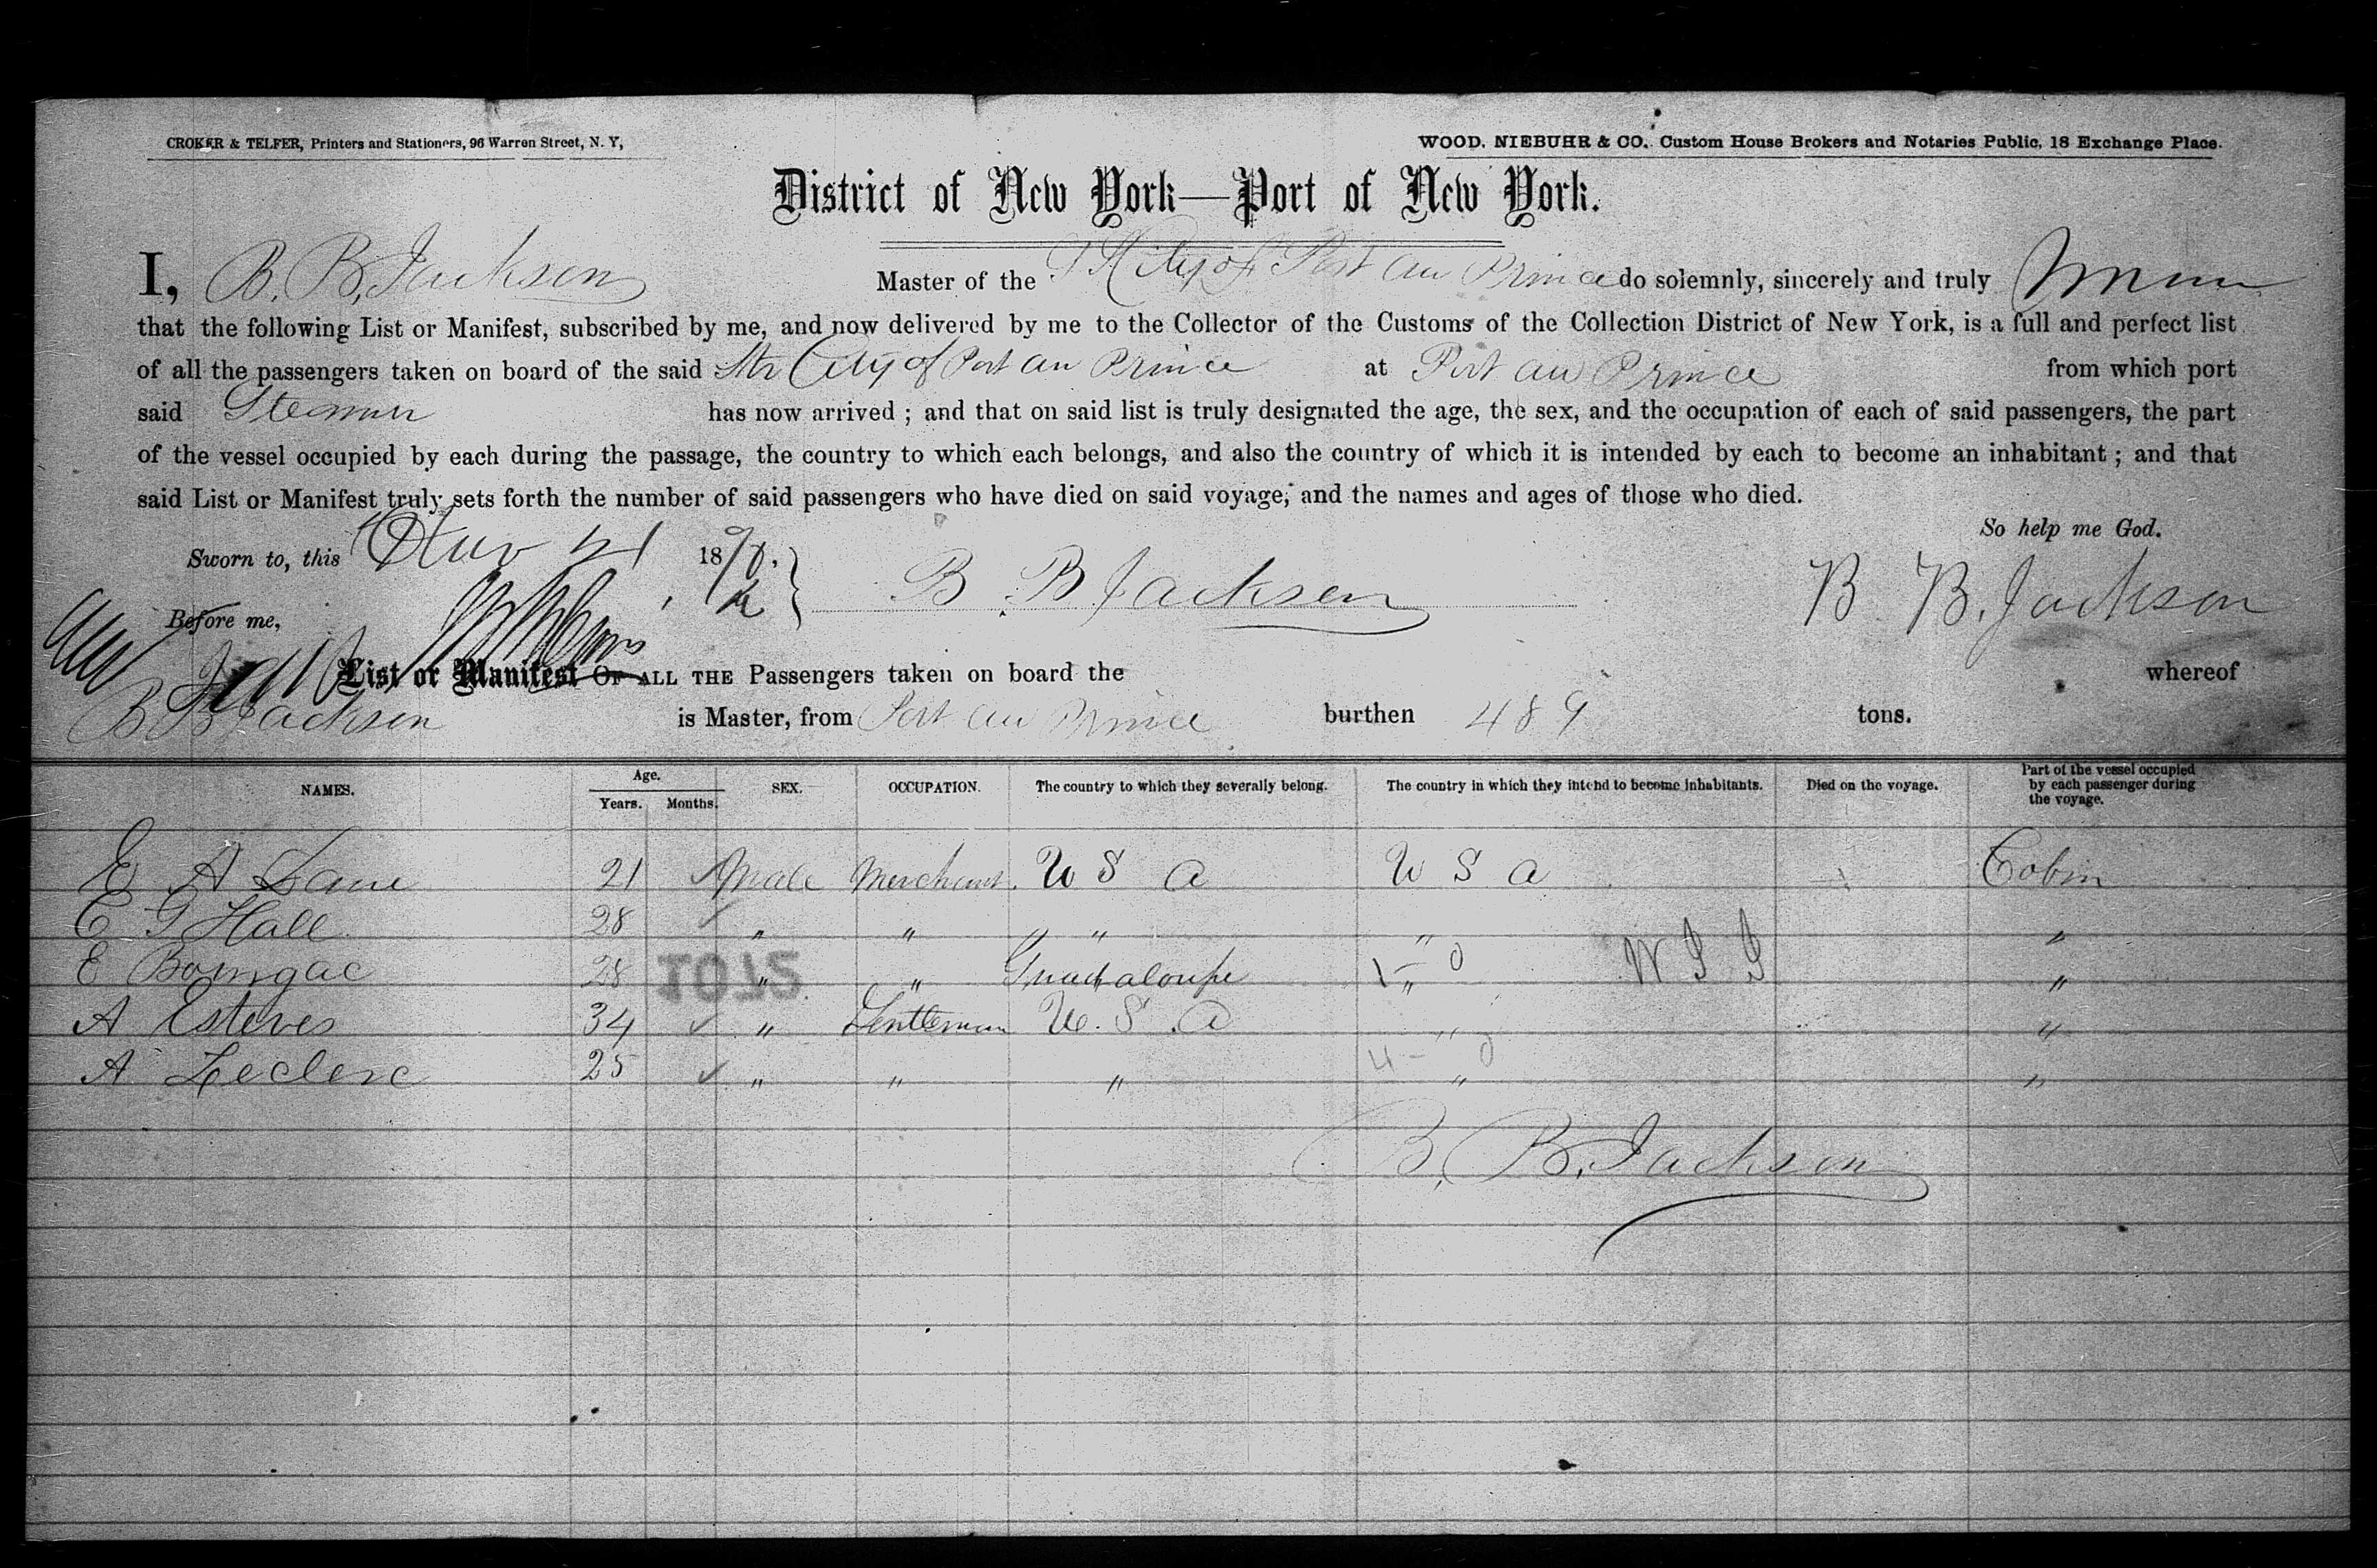 CROKER & TELFER, Printers and Stationers, 96 Warren Street, N. Y,
WOOD, NIEBUHR & CO. Custom House Brokers and Notaries Public, 18 Exchange Place.
District of New York—Port of New York.
I, B. B. Jackson Master of the City of Port au Prince do solemnly, sincerely and truly
that the following List or Manifest, subscribed by me, and now delivered by me to the Collector of the Customs of the Collection District of New York, is a full and perfect list
of all the passengers taken on board of the said Str City of Port au Prince at Port au Prince from which port
said Steamer has now arrived ; and that on said list is truly designated the age, the sex, and the occupation of each of said passengers, the part
of the vessel occupied by each during the passage, the country to which each belongs, and also the country of which it is intended by each to become an inhabitant ; and that
said List or Manifest truly sets forth the number of said passengers who have died on said voyage, and the names and ages of those who died.
So help me God.
Sworn to, this 18 B B Jackson B B. Jackson
Before me,
List or Manifest OF ALL THE Passengers taken on board the whereof
B B Jackson is Master, from Port au Prince burthen 489 tons.
NAMES. Age. Years. Months. SEX. OCCUPATION. The country to which they severally belong. The country in which they intend to become inhabitants. Died on the voyage. Part of the vessel occupied by each passenger during the voyage.
E A 21 Male Merchant. U S a U S a Cabin
E G Hall 28 " " " " " "
E 28 " " Guadaloupe " W I I "
A Esteves 34 " Gentleman U. S. a " "
A Leclerc 25 " " " " "
B. B. Jackson